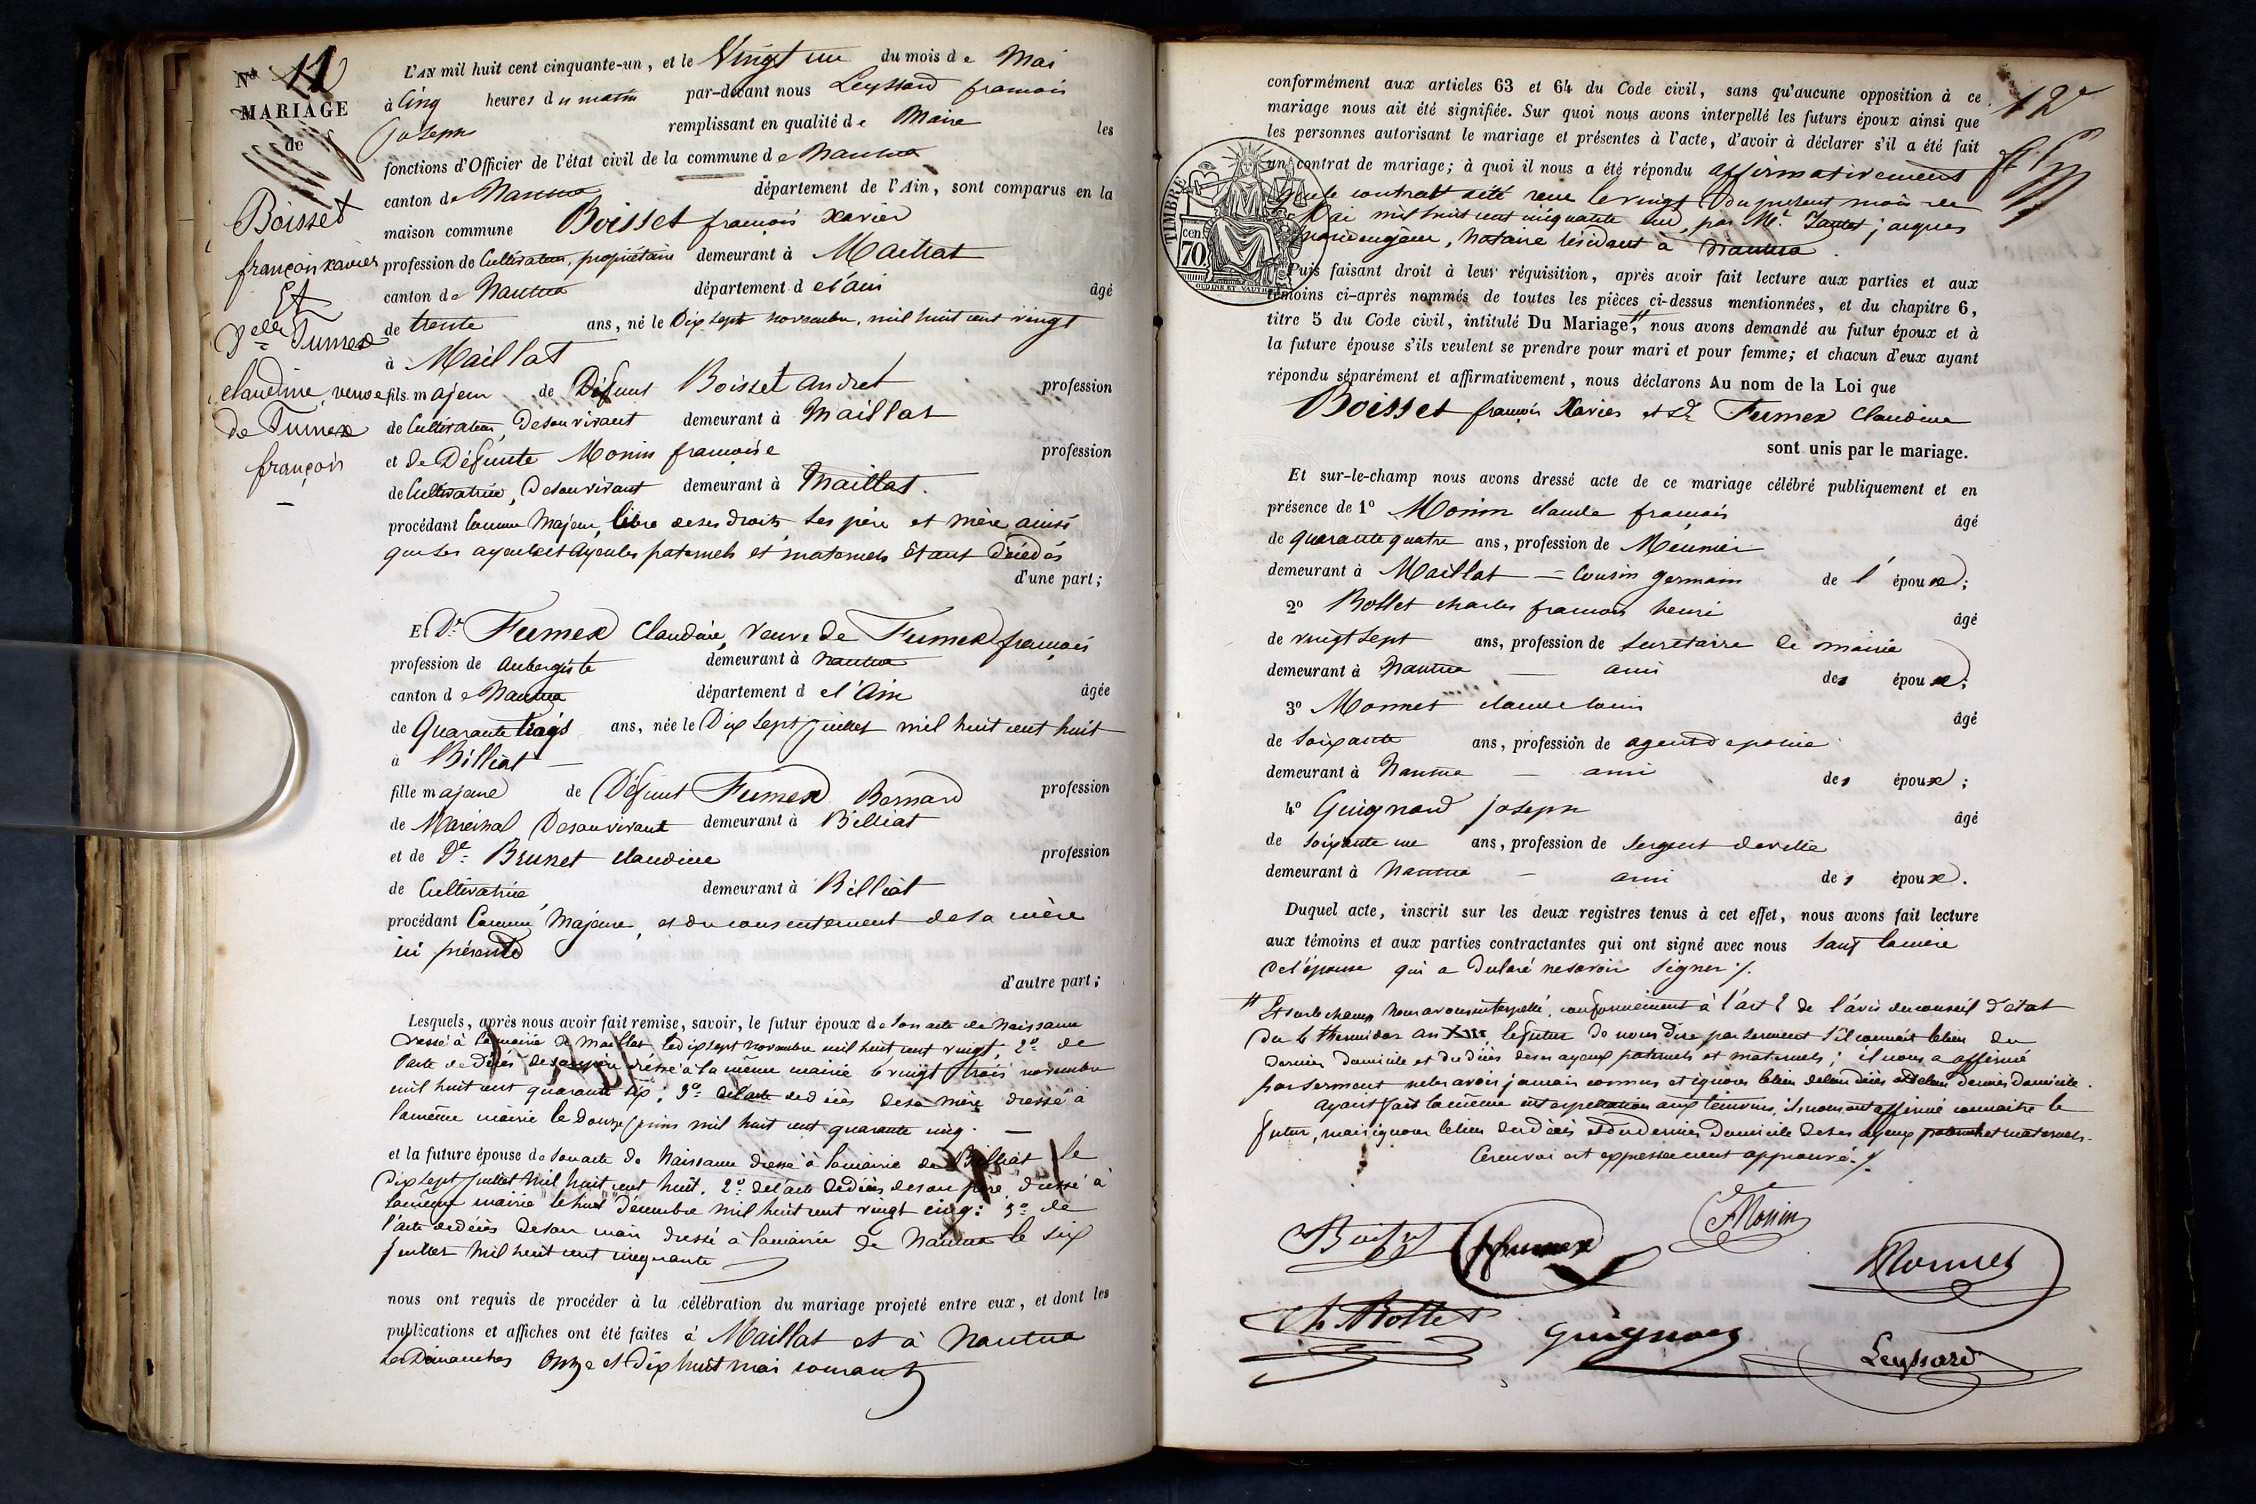 No 11
MARIAGE
de
Boisset
françois xavier
Et
Delle Fumex
claudine, veuve
de Fumex
françois
L'AN mil huit cent cinquante-un, et le Vingt un du mois de Mai
à Cinq heures du matin par-devant nous Leyssard françois
joseph remplissant en qualité de Maire les
fonctions d'Officier de l'état civil de la commune de Nantua
canton de Nantua département de l'Ain, sont comparus en la
maison commune Boisset françois xavier
profession de Cultivateur, propriétaire demeurant à Maillat
canton de Nantua département de l'ain âgé
de trente ans, né le Dix sept novembre, mil huit cent vingt
à Maillat
fils majeur de Défunt Boisset andret profession
de Cultivateur, De son vivant demeurant à Maillat
et de Défunte Monin françoise profession
de Cultivatrice, De son vivant demeurant à Maillat.
procédant Comme Majeur, libre de ses droits, ses père et mère ainsi
que ses ayeuls et Ayeules paternels et maternels étant Décédés
d'une part;
Et De Fumex Claudine, veuve de Fumex françois
profession de Aubergiste demeurant à Nantua
canton de Nantua département de l'Ain âgée
de Quarante trois ans, née le Dix sept juillet mil huit cent huit
à Billiat
fille majeure de Défunt Fumex Bernard profession
de Maréchal De son vivant demeurant à Billiat
et de De Brunet claudine profession
de Cultivatrice demeurant à Billiat
procédant Comme Majeure, et du consentement de sa mère
ici présente
d'autre part;
Lesquels, après nous avoir fait remise, savoir, le futur époux de son acte de Naissance
dressé à la mairie de Maillat le dix sept novembre mil huit cent vingt, 2o de
l'acte de Décès de son père dressé à la même mairie le vingt trois novembre
mil huit cent quarante six; 3o de l'acte de décès de sa mère dressé à
la même mairie le Douze juin mil huit cent quarante cinq.
et la future épouse de son acte de Naissance dressé à la mairie de Billiat le
Dix sept juillet Mil huit cent huit. 2o de l'acte de décès de son père dressé à
la même mairie le huit Décembre mil huit cent vingt cinq: 3o de
l'acte de décès de son mari dressé à la mairie de Nantua le six
juillet Mil huit cent cinquante
nous ont requis de procéder à la célébration du mariage projeté entre eux, et dont les
publications et affiches ont été faites à Maillat et à Nantua
Les Dimanches Onze et Dix huit mai courant
conformément aux articles 63 et 64 du Code civil, sans qu'aucune opposition à ce
mariage nous ait été signifiée. Sur quoi nous avons interpellé les futurs époux ainsi que
les personnes autorisant le mariage et présentes à l'acte, d'avoir à déclarer s'il a été fait
un contrat de mariage; à quoi il nous a été répondu affirmativement
que le contrat a été reçu le vingt Du présent mois de
Mai mil huit cent cinquante un, par Me. jacques
Notaire résidant à Nantua.
12e
TIMBRE
70 cen
OUDINE ET VAUTHIER
Puis faisant droit à leur réquisition, après avoir fait lecture aux parties et aux
témoins ci-après nommés de toutes les pièces ci-dessus mentionnées, et du chapitre 6,
titre 5 du Code civil, intitulé Du Mariage, # nous avons demandé au futur époux et à
la future épouse s'ils veulent se prendre pour mari et pour femme; et chacun d'eux ayant
répondu séparément et affirmativement, nous déclarons Au nom de la Loi que
Boisset françois Xavier et De Fumex Claudine
sont unis par le mariage.
Et sur-le-champ nous avons dressé acte de ce mariage célébré publiquement et en
présence de 1o Monin claude françois âgé
de quarante quatre ans, profession de Meunier
demeurant à Maillat — Cousin germain de l'époux;
2o Bollet charles françois henri âgé
de vingt sept ans, profession de Secrétaire de mairie
demeurant à Nantua — ami des époux;
3o Monnet claude louis âgé
de Soixante ans, profession de agent de police
demeurant à Nantua — ami des époux;
4o Guignard joseph âgé
de Soixante un ans, profession de Sergent de ville
demeurant à Nantua — ami des époux.
Duquel acte, inscrit sur les deux registres tenus à cet effet, nous avons fait lecture
aux témoins et aux parties contractantes qui ont signé avec nous Sauf la mère
de l'épouse qui a Déclaré ne savoir signer ./.
# Et sur le champ Nous avons interpellé, conformément à l'art 2 de l'avis du conseil d'état
Du 4 thermidor an XIII, le futur de nous Dire par serment s'il connait le lieu du
Dernier Domicile et du décès de ses ayeux paternels et maternels; il nous a affirmé
par serment ne les avoir jamais connus et ignorer le lieu de leur décès et de leur dernier Domicile.
Ayant fait la même interpellation aux témoins, ils nous ont affirmé connaitre le
futur, mais ignorer le lieu du décès et du dernier Domicile de ses ayeux paternels et maternels.
Ce renvoi est expressément approuvé ./.
Boisset fumex Monin
Monnet
Ch Bollet Guignard
Leyssard